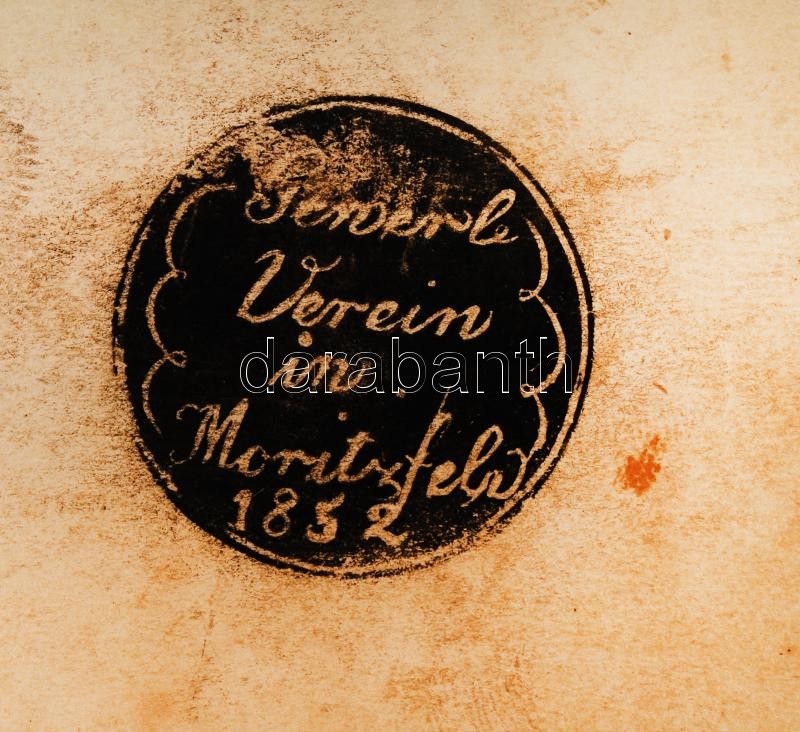 Gewerb
Verein
in
Moritzfeld
1852
darabanth